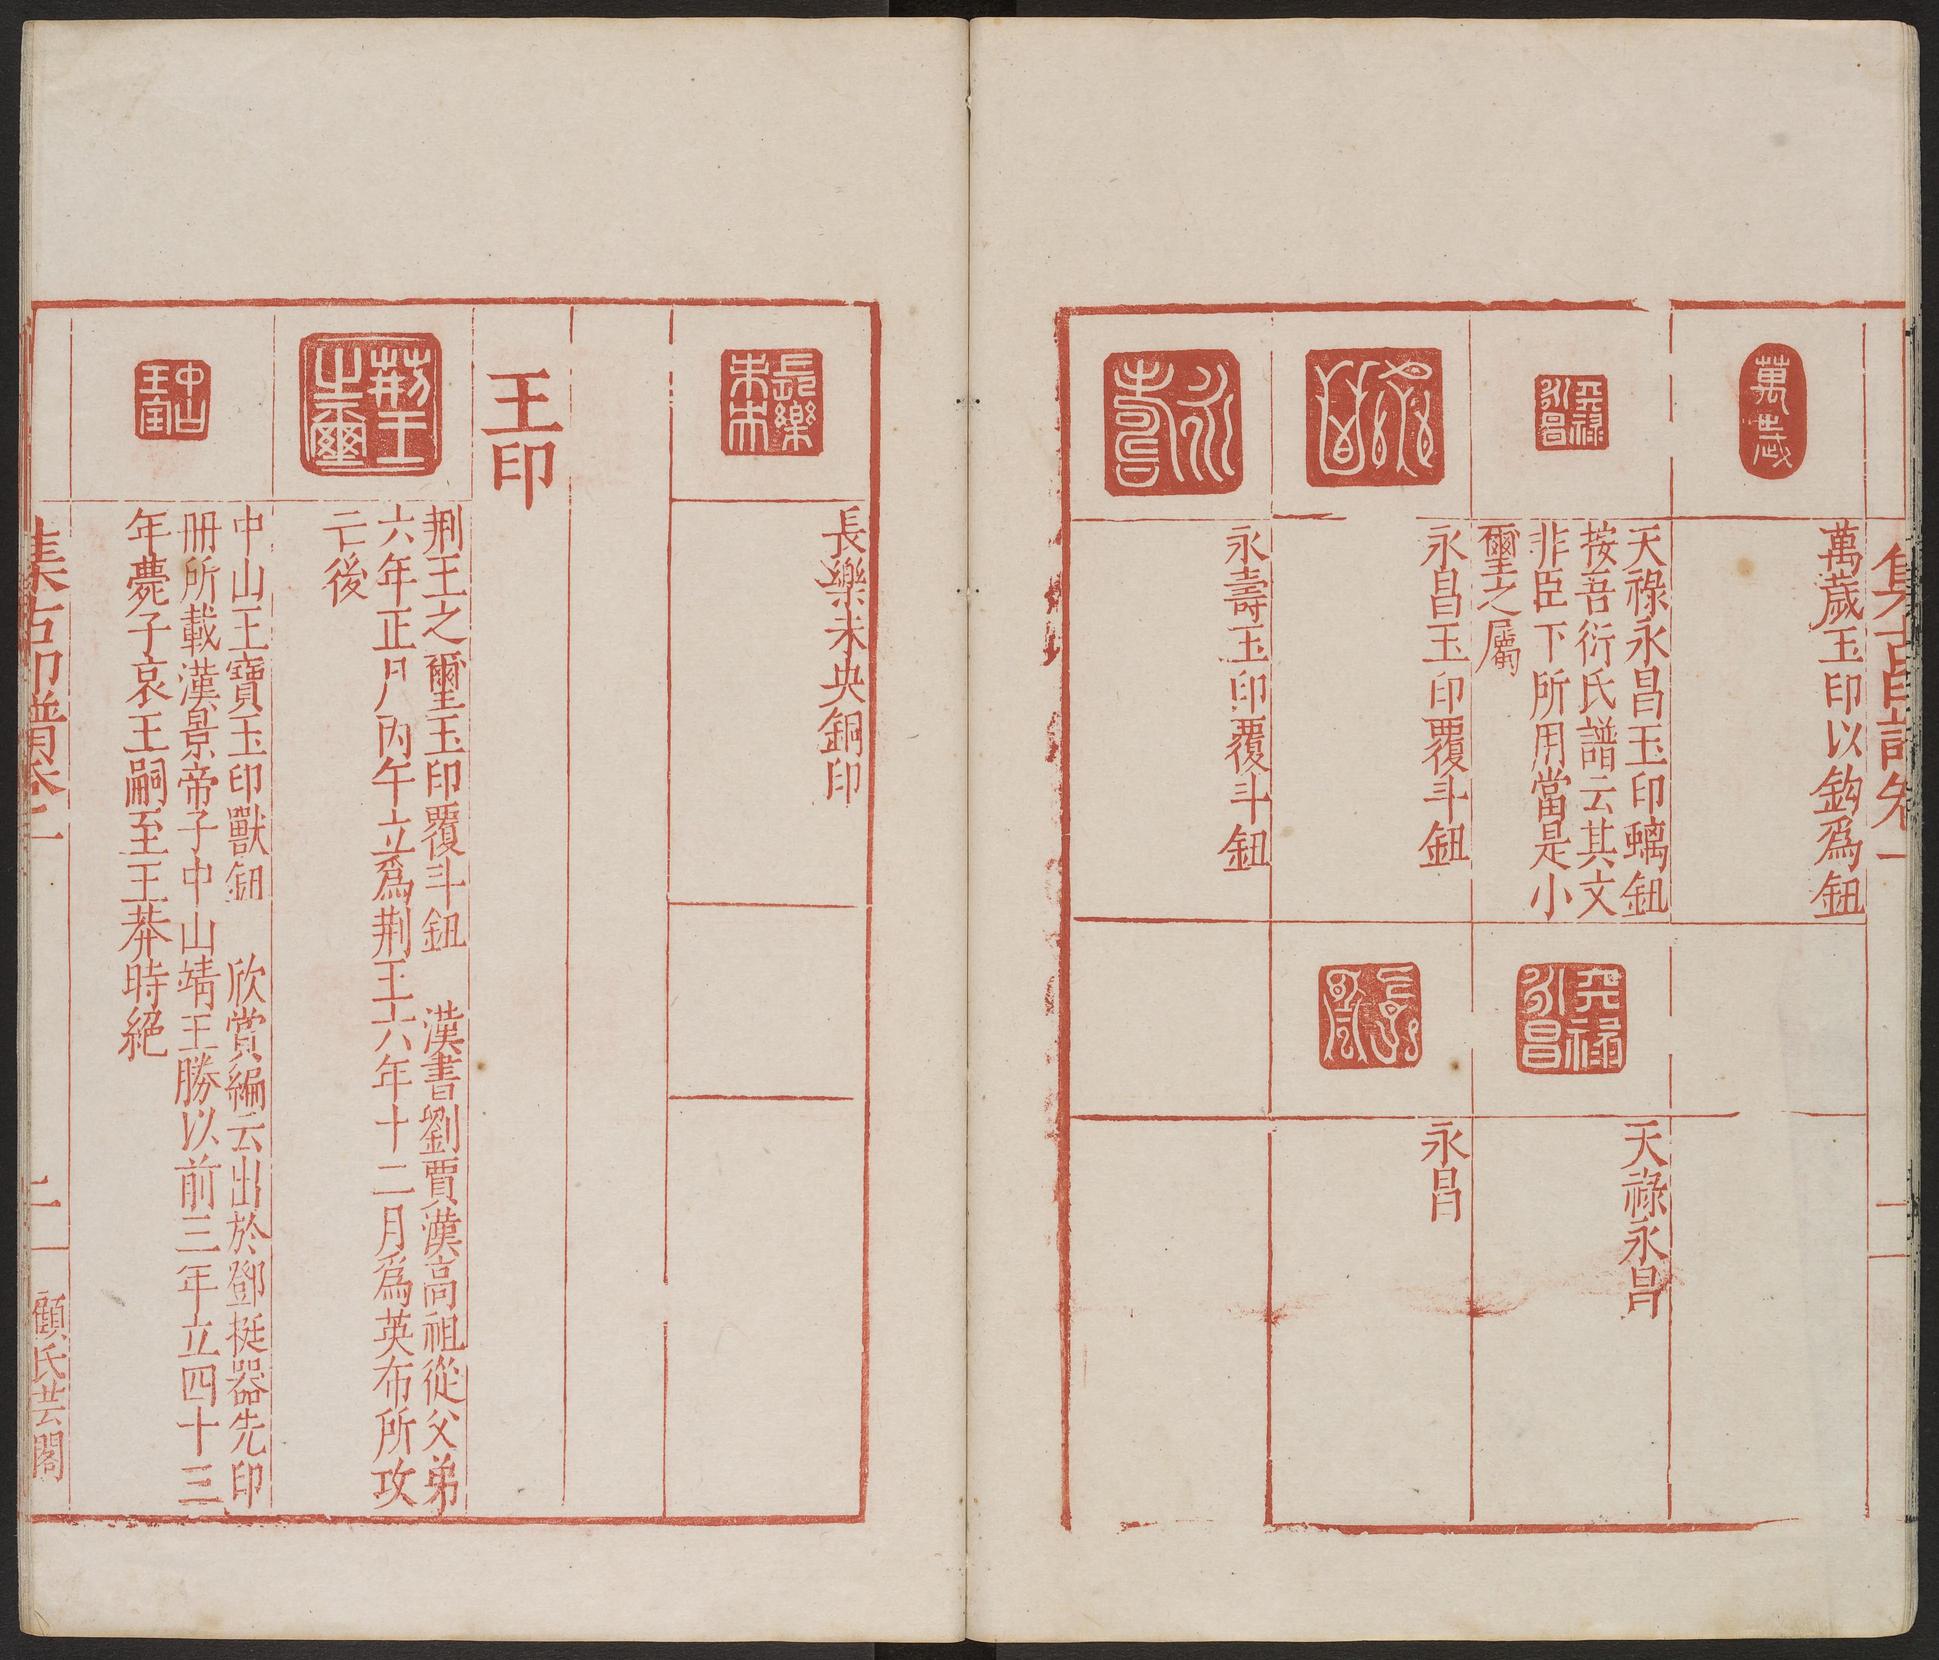 集古印譜卷一
萬歲
萬歲玉印以鈎爲鈕
天祿永昌
天祿永昌玉印螭鈕
按吾衍氏譜云其文
非臣下所用當是小
璽之屬
天祿永昌
天祿永昌
永昌
永昌玉印覆斗鈕
永昌
永昌
永壽
永壽玉印覆斗鈕
長樂未央
長樂未央銅印
王印
荆王之璽
荆王之璽玉印覆斗鈕　漢書劉賈漢高祖從父弟
六年正月丙午立爲荆王六年十二月爲英布所攻
亡後
中山王寶
中山王寶玉印獸鈕　欣賞編云出於鄧挺器先印
冊所載漢景帝子中山靖王勝以前三年立四十三
年薨子哀王嗣至王莽時絕
集古印譜卷一
二
顧氏芸閣